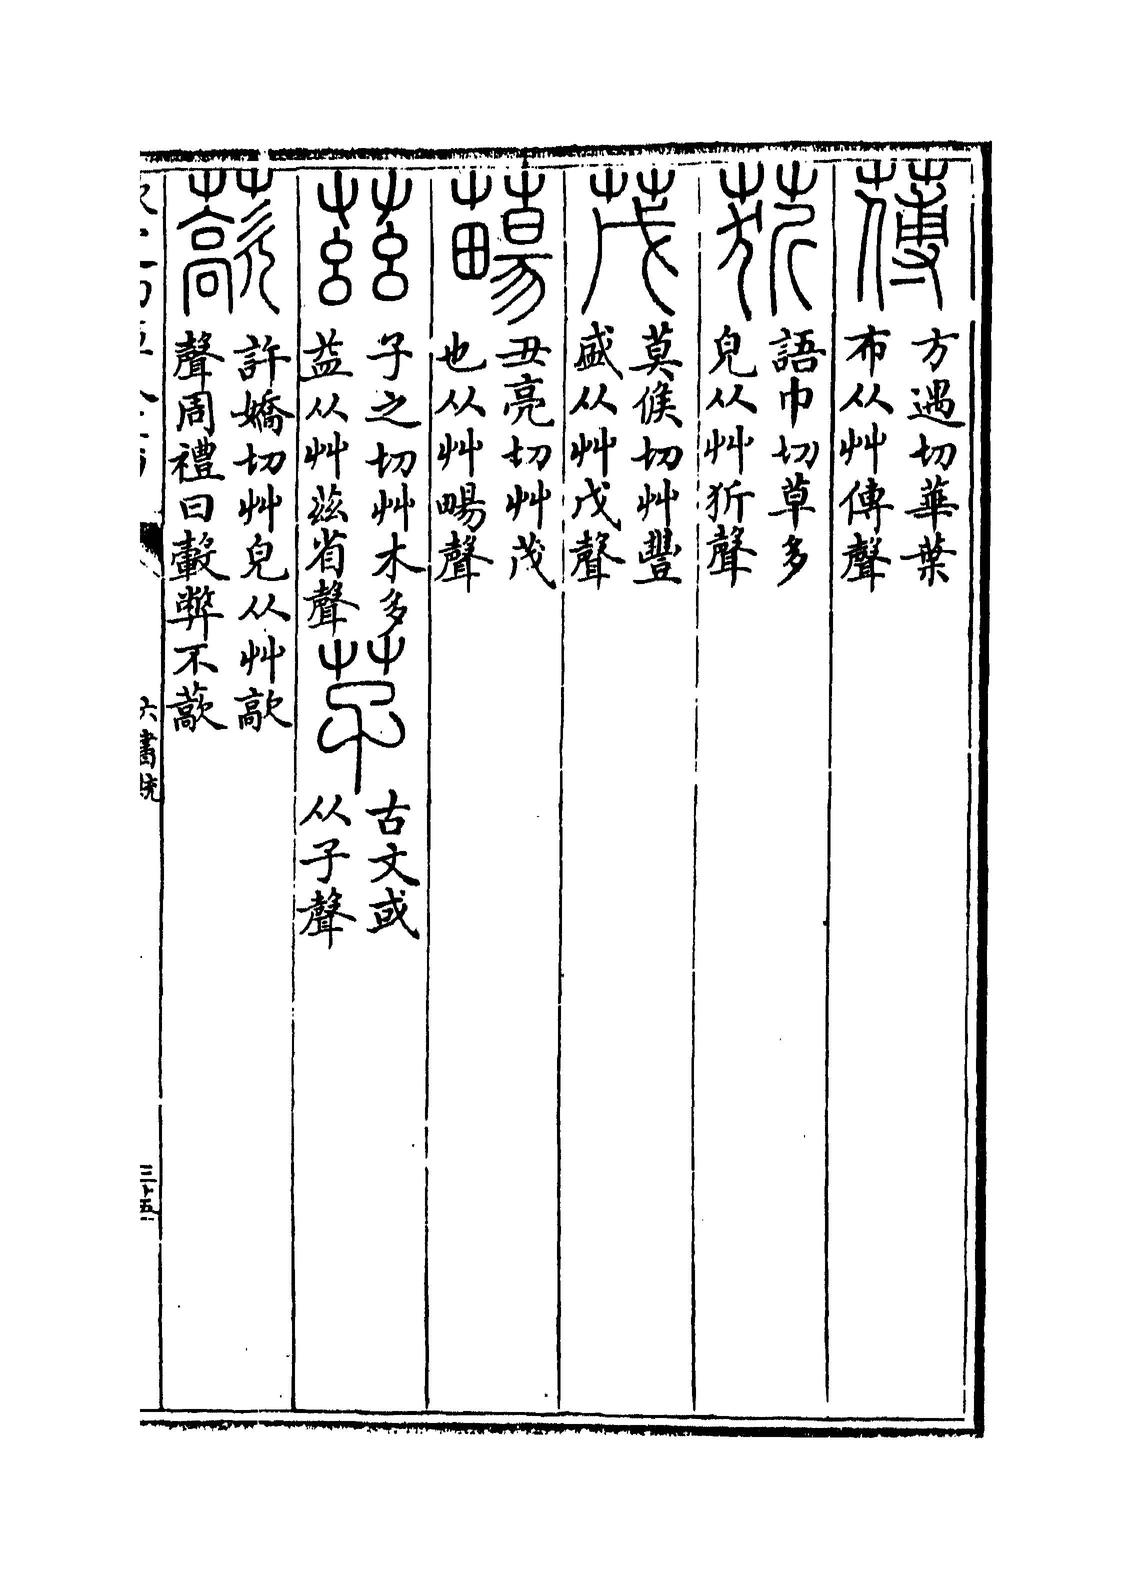 傅 方遇切華葉
布从艸傅聲
𦱅 語巾切草多
皃从艸㹞聲
茂 莫候切艸豐
盛从艸戊聲
䔥 丑亮切艸茂
也从艸畼聲
茲 子之切艸木多
益从艸茲省聲
芓 古文或
从子聲
藃 許嬌切艸皃从艸歊
聲周禮曰轂弊不藃
六書統
三十五